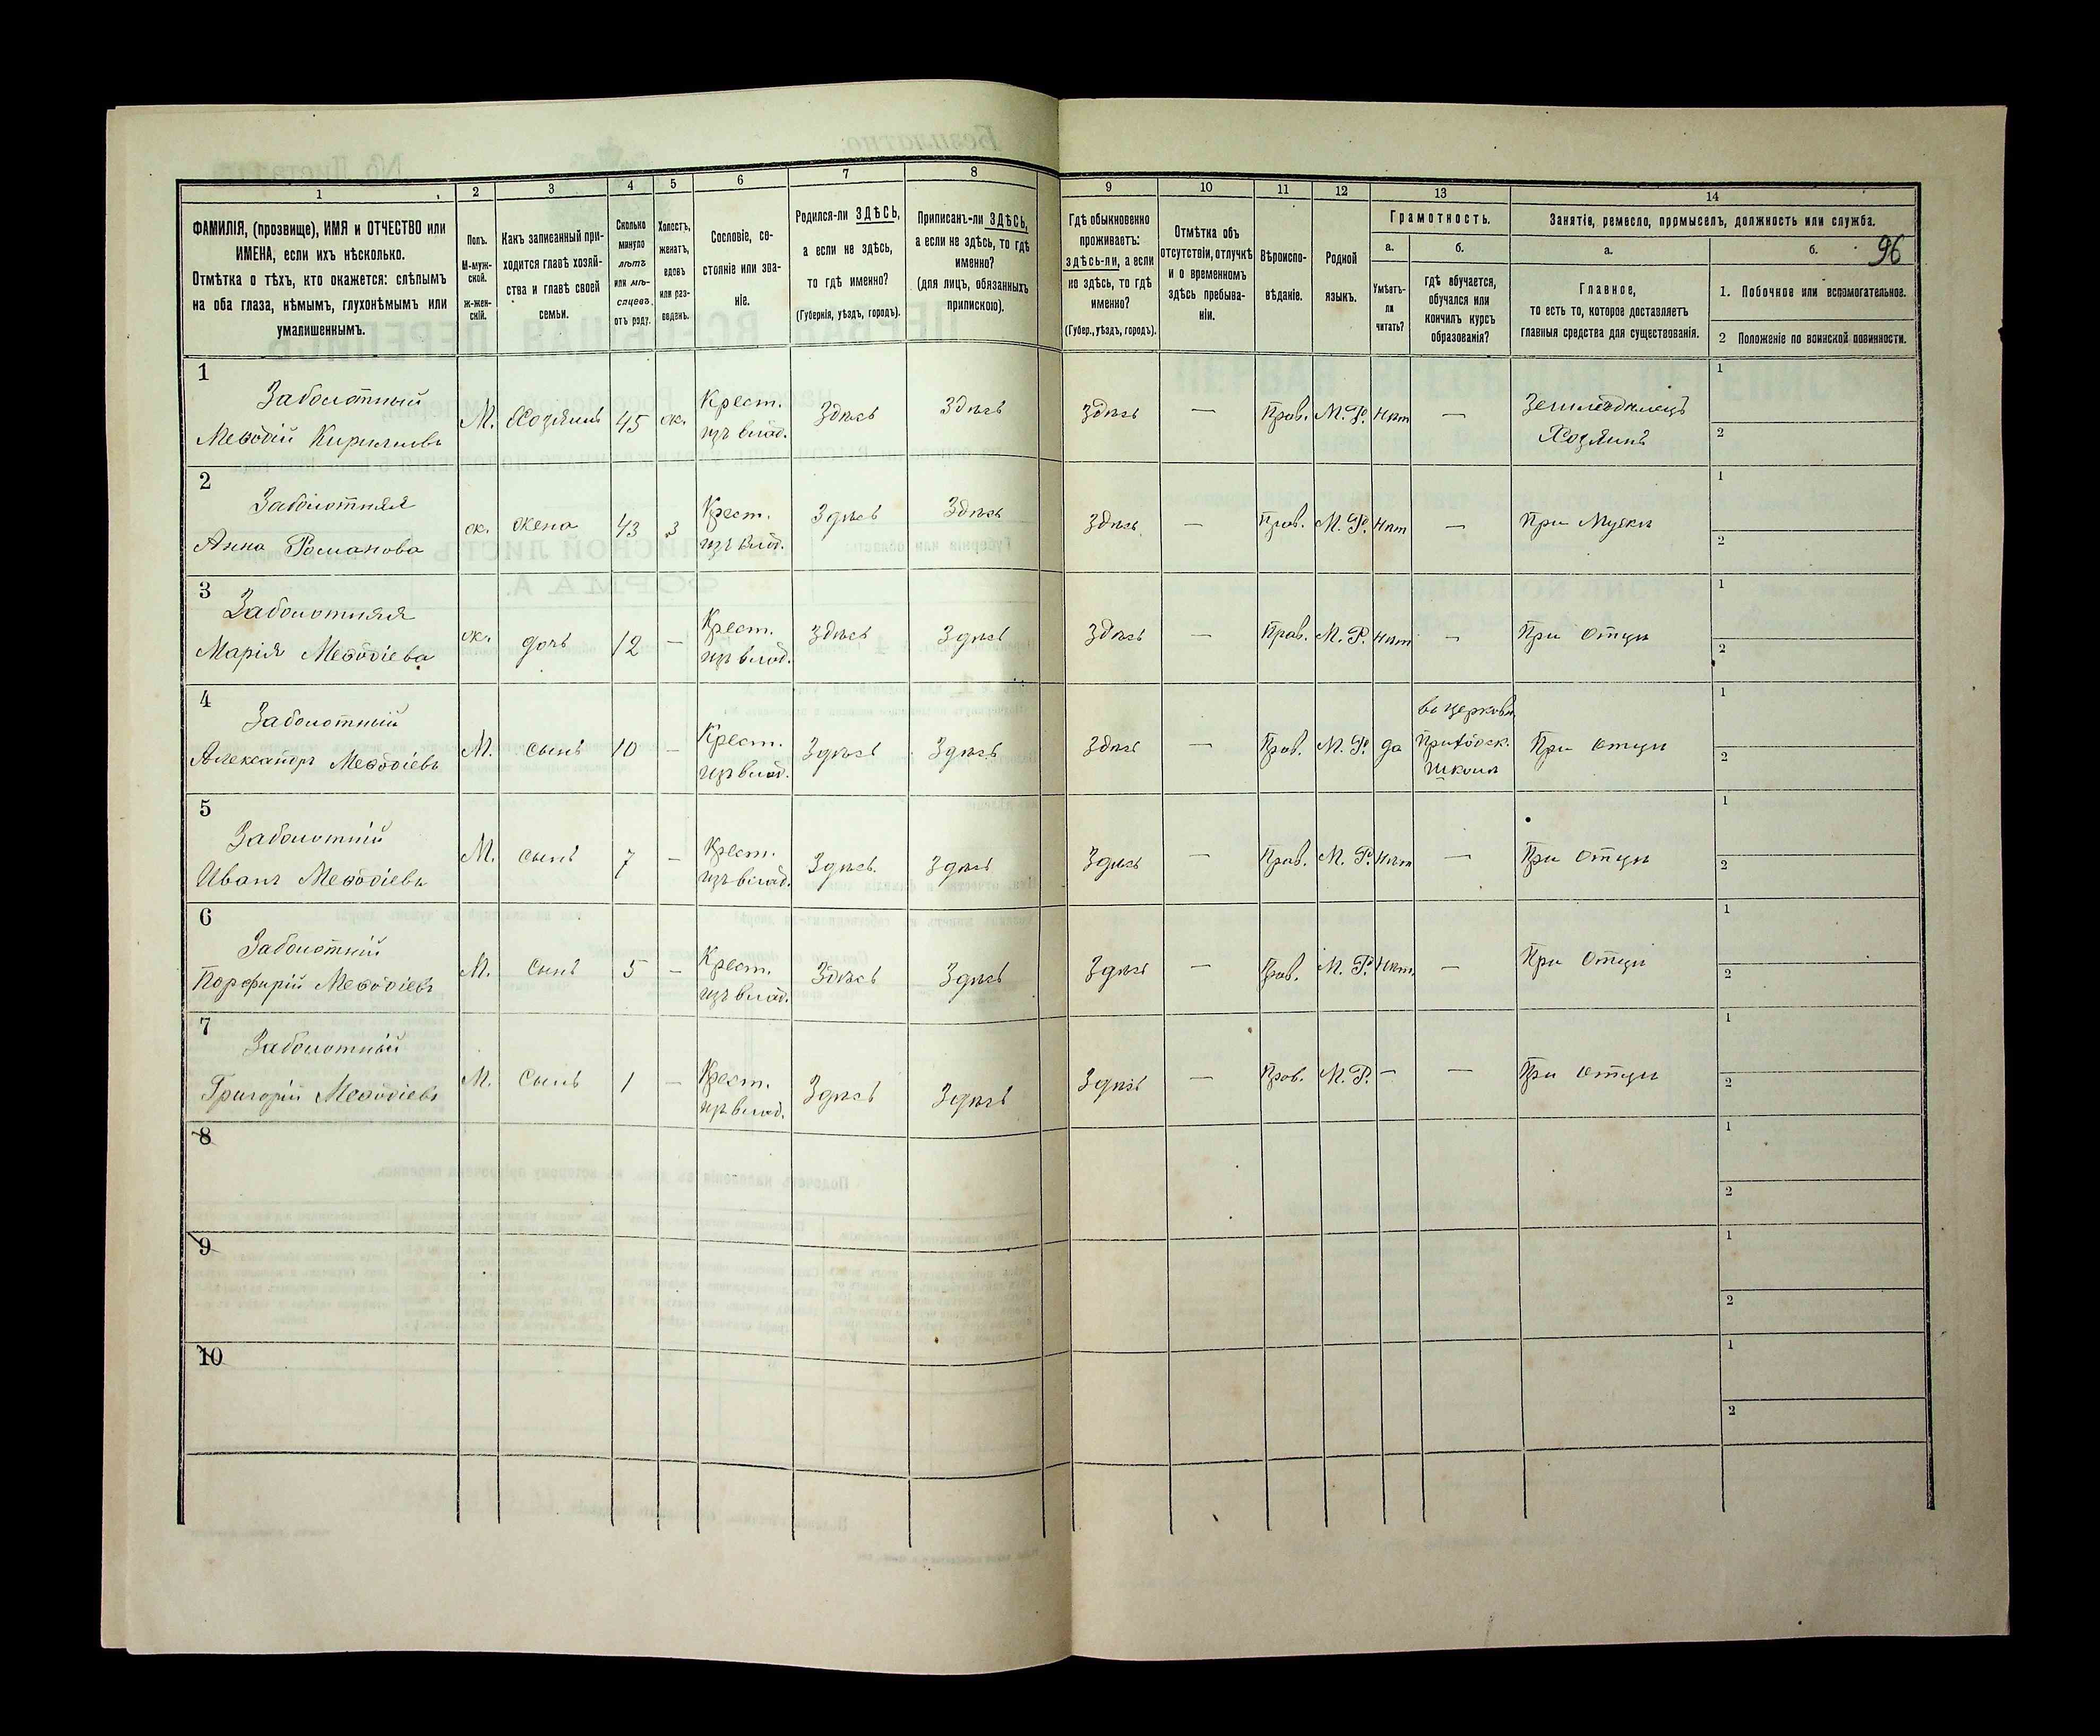 1 2 3 4 5 6 7 8 9 10 11 12 13 14
96
ФАМИЛІЯ, (прозвище), ИМЯ и ОТЧЕСТВО или
ИМЕНА, если ихъ нѣсколько.
Отмѣтка о тѣхъ, кто окажется: слѣпымъ
на оба глаза, нѣмымъ, глухонѣмымъ или
умалишеннымъ.
Полъ.
М-муж-
ской.
Ж-жен-
скій.
Какъ записанный при-
ходится главѣ хозяй-
ства и главѣ своей
семьи.
Сколько
минуло
лѣтъ
или мѣ-
сяцевъ
отъ роду.
Холостъ,
женатъ,
вдовъ
или раз-
веденъ.
Сословіе, со-
стояніе или зва-
ніе.
Родился-ли ЗДѢСЬ,
а если не здѣсь,
то гдѣ именно?
(Губернія, уѣздъ, городъ).
Приписанъ-ли ЗДѢСЬ,
а если не здѣсь, то гдѣ
именно?
(для лицъ, обязанныхъ
припискою).
Гдѣ обыкновенно
проживаетъ:
здѣсь-ли, а если
не здѣсь, то гдѣ
именно?
(Губер., уѣздъ, городъ).
Отмѣтка объ
отсутствіи, отлучкѣ
и о временномъ
здѣсь пребыва-
ніи.
Вѣроиспо-
вѣданіе.
Родной
языкъ.
Грамотность.
а. б.
Умѣетъ-
ли
читать?
гдѣ обучается,
обучался или
кончилъ курсъ
образованія?
Занятія, ремесло, промыселъ, должность или служба.
а. б.
Главное,
то есть то, которое доставляетъ
главныя средства для существованія.
1. Побочное или вспомогательное.
2 Положеніе по воинской повинности.
1
Заболотный Крест. Земледѣлецъ 1
Меѳодій Кириловъ М. Хозяинъ 45 ж. изъ влад. Здѣсь Здѣсь Здѣсь — Прав. М. Р. Нѣт — Хозяинъ 2
2
Заболотняя Крест. 1
Анна Романова ж. жена 43 з изъ влад. Здѣсь Здѣсь Здѣсь — Прав. М. Р. Нѣт — При Мужѣ 2
3
Заболотняя Крест. 1
Марія Меѳодіева ж. дочь 12 — изъ влад. Здѣсь Здѣсь Здѣсь — Прав. М. Р. Нѣт — При отцѣ 2
4
Заболотный Крест. въ церковн 1
Александръ Меѳодіевъ М. сынъ 10 — изъ влад. Здѣсь Здѣсь Здѣсь — Прав. М. Р. да Приходск. При отцѣ 2
Школѣ
5
Заболотній Крест. 1
Иванъ Меѳодіевъ М. сынъ 7 — изъ влад. Здѣсь. Здѣсь Здѣсь — Прав. М. Р. Нѣт — При отцѣ 2
6
Заболотній Крест. 1
Порфирій Меѳодіевъ М. сынъ 5 — изъ влад. Здѣсь Здѣсь Здѣсь — Прав. М. Р. Нѣт. — При Отцѣ 2
7
Заболотный Крест. 1
Григорій Меѳодіевъ М. Сынъ 1 — изъ влад. Здѣсь Здѣсь Здѣсь — Прав. М. Р. — — При отцѣ 2
8 1
2
9 1
2
10 1
2